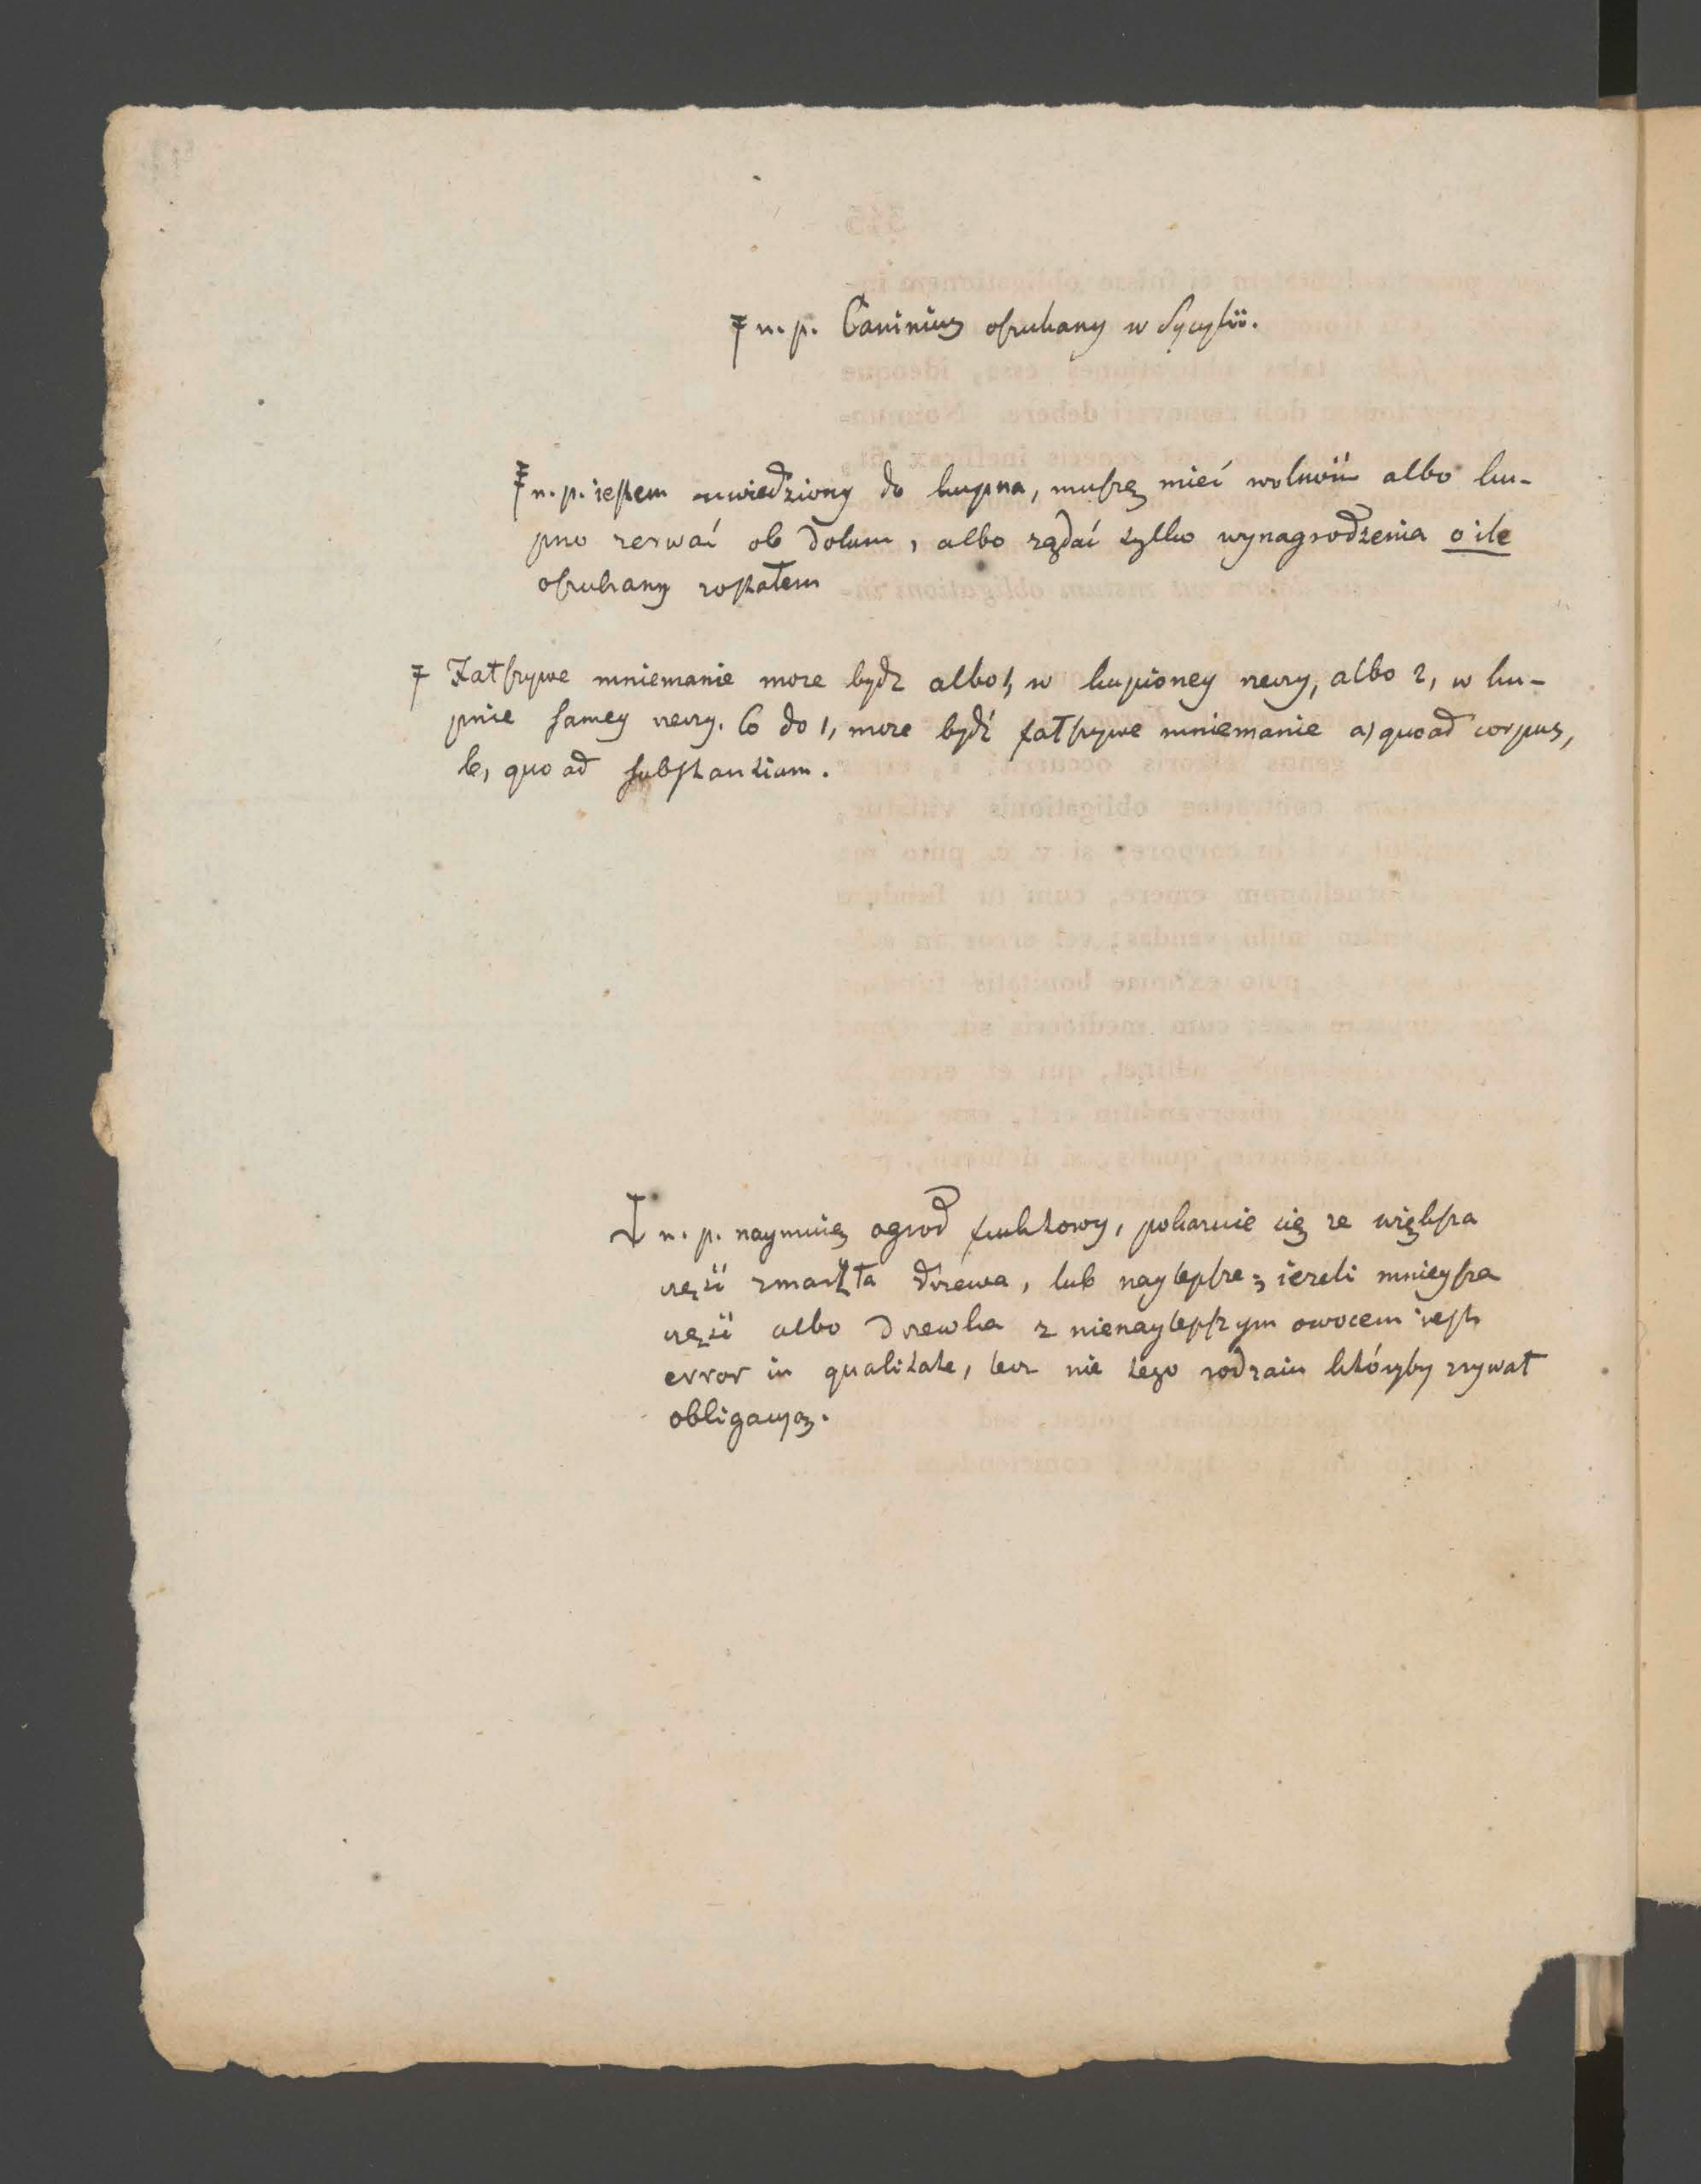 n. p. Caninius oszukany w Sycylii.
n. p. iestem uwiedziony do kupna, muszę mieć wolność albo ku-
pno zerwać ob dolum, albo rządać tylko wynagrodzenia o ile
oszukany zostałem
Fałszywe mniemanie może bydz albo 1, w kupioney rzeczy, albo 2, w ku-
pnie samey rzeczy. Co do 1, może bydź fałszywe mniemanie a) quoad corpus,
b, quo ad substantiam.
n. p. naymuię ogrod fruktowy, pokazuie się że większa
część zmarzła drzewa, lub naylepsze; ieżeli mnieysza
część albo drzewka z nienaylepszym owocem iest
error in qualitate, lecz nie tego rodzaiu któryby zrywał
obligacyą.